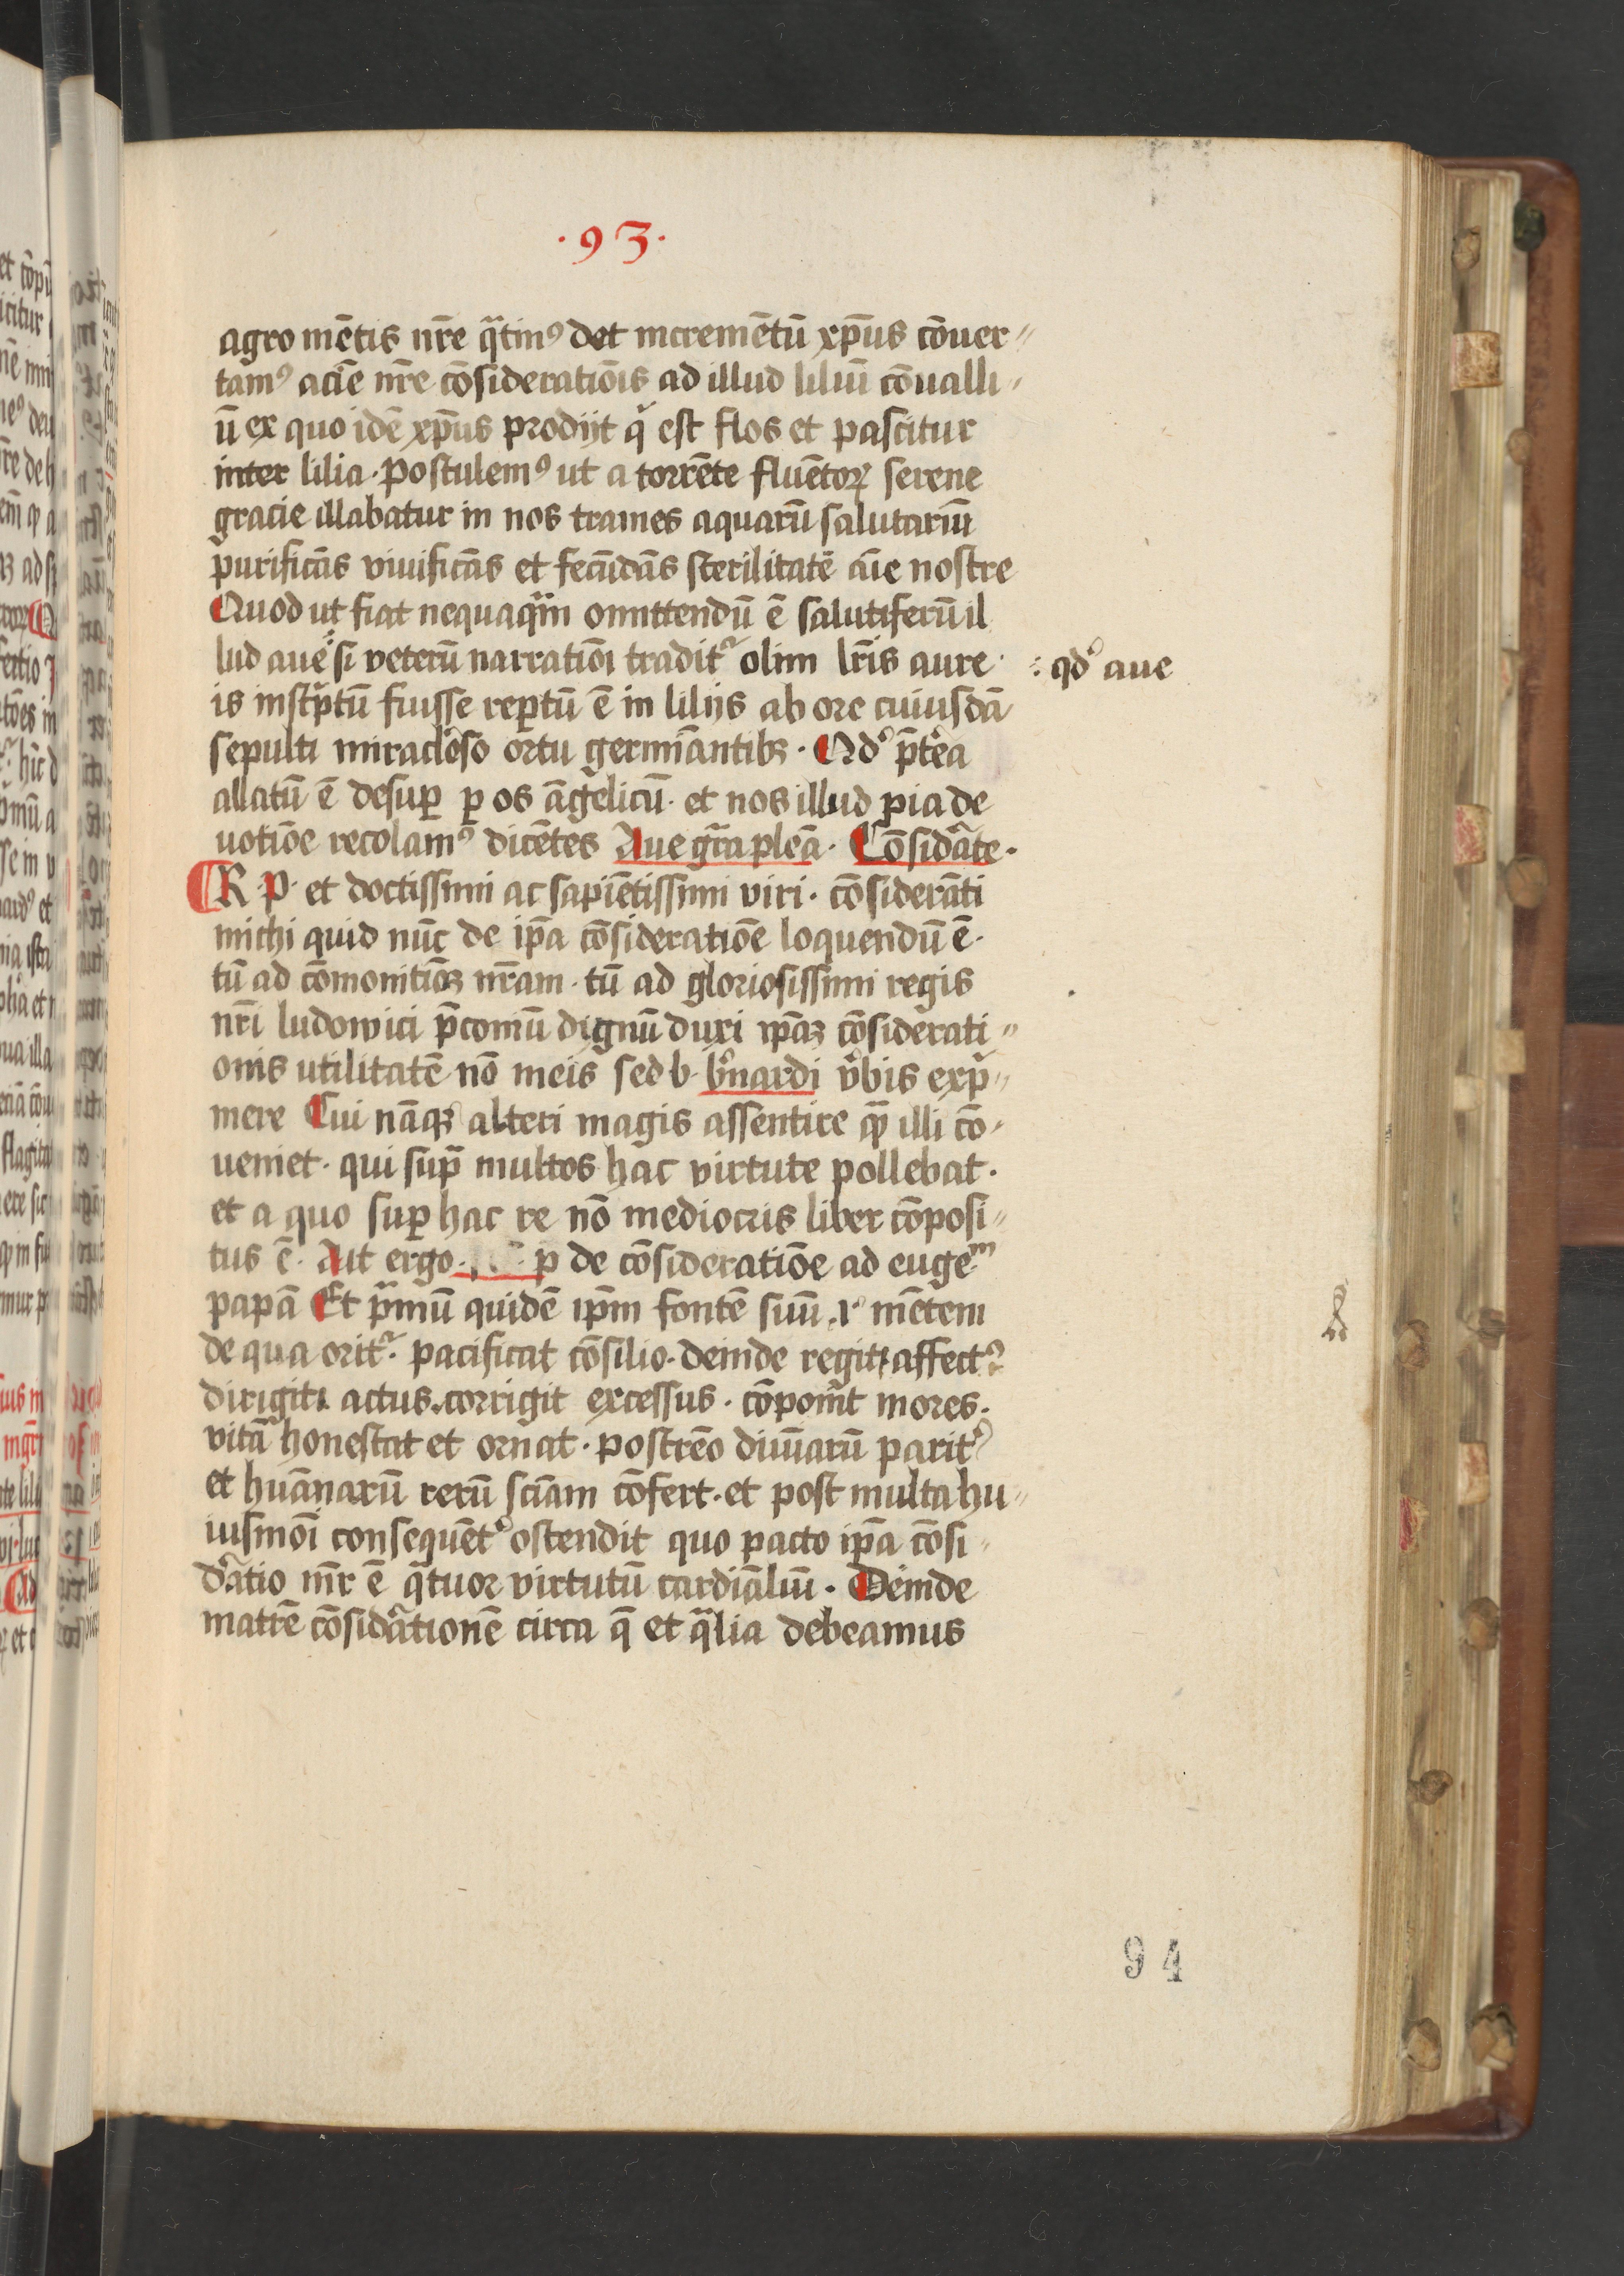 ·93·
agro mētis nr̄e qͣtinꝰ det incremētū xp̄us cōuer〃
tamꝰ aciē nr̄e cōsideratiōis ad illud liliū cōualli〃
ū ex quo idē xp̄us prodijt qͥ est flos et pascitur
inter lilia · Postulemꝰ ut a torrēte fluētoꝝ serene
gracie illabatur in nos trames aquarū salutariū
purificās viuificās et fecūdās sterilitatē aīe nostre
Quod ut fiat nequaqͣm omittendū ē salutiferū il
lud aue si veterū narratiōi traditᷣ olim lr̄is aure
⁖ qdᵒ aue
is inscͥptū fuisse rep̄tū ē in lilijs ab ore cuiusdā
sepulti miraclōso ortu germīantibꝫ · Qdᵒ p̄tͤea
allatū ē desuꝑ ꝑ os āgelicū · et nos illud pia de
uotiōe recolamꝰ dicētes Aue gr̄a pleā · Cōsidͣate ·
R · P · et doctissimi ac sapiētissimi viri · cōsiderāti
michi quid nūc de ip̄a cōsideratiōe loquendū ē ·
tū ad cōmonitiōꝫ nr̄am · tū ad gloriosissimi regis
nr̄i ludowici p̄coniū dignū duxi ip̄aꝫ cōsiderati〃
onis utilitatē nō meis sed b · bͤnardi vͤbis expͥ〃
mere Cui nāqꝫ alteri magis assentire qͣꝫ illi cō〃
ueniet · qui sup̄ multos hac virtute pollebat ·
et a quo suꝑ hac re nō mediocris liber cōposi〃
tus ē · Ait ergo · p de cōsideratiōe ad eugeᵐ
papā Et pͥmū quidē ip̄m fontē suū .i. mētem
de qua oritᷣ · pacificat cōsilio · deinde regit affectꝰ
dirigit actus · corrigit excessus · cōponit mores ·
vitā honestat et ornat · postrēo diuīarū paritͤ
et huānarū rerū sciam cōfert · et post multa hu〃
iusmōi consequētͤ ostendit quo pacto ip̄a cōsi〃
dͣatio mr̄ ē qͣtuor virtutū cardiāliū · Deinde
matrē cōsidͣationē circa q̄ et qͣlia debeamus
94